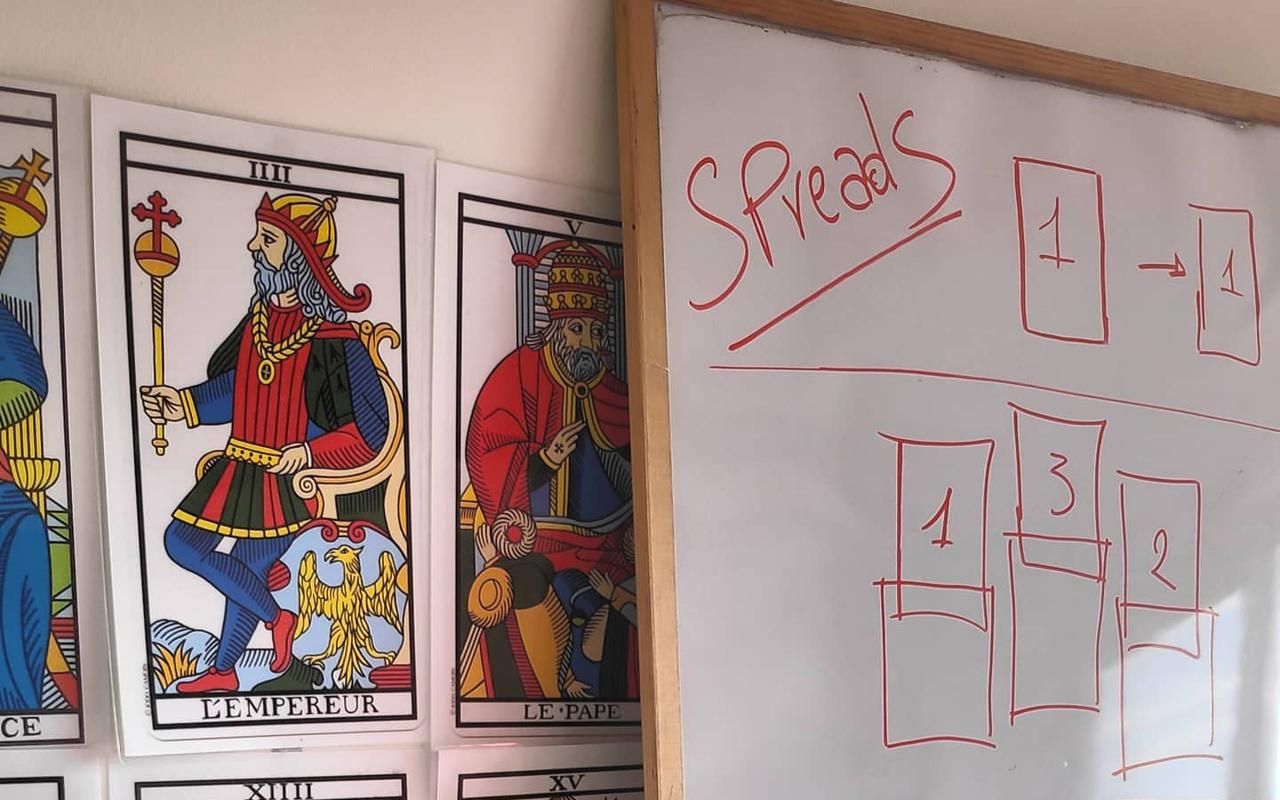 IIII
L'EMPEREUR
V
LE•PAPE
CE
XIIII
XV
SPreadS
1 → 1
1 3 2